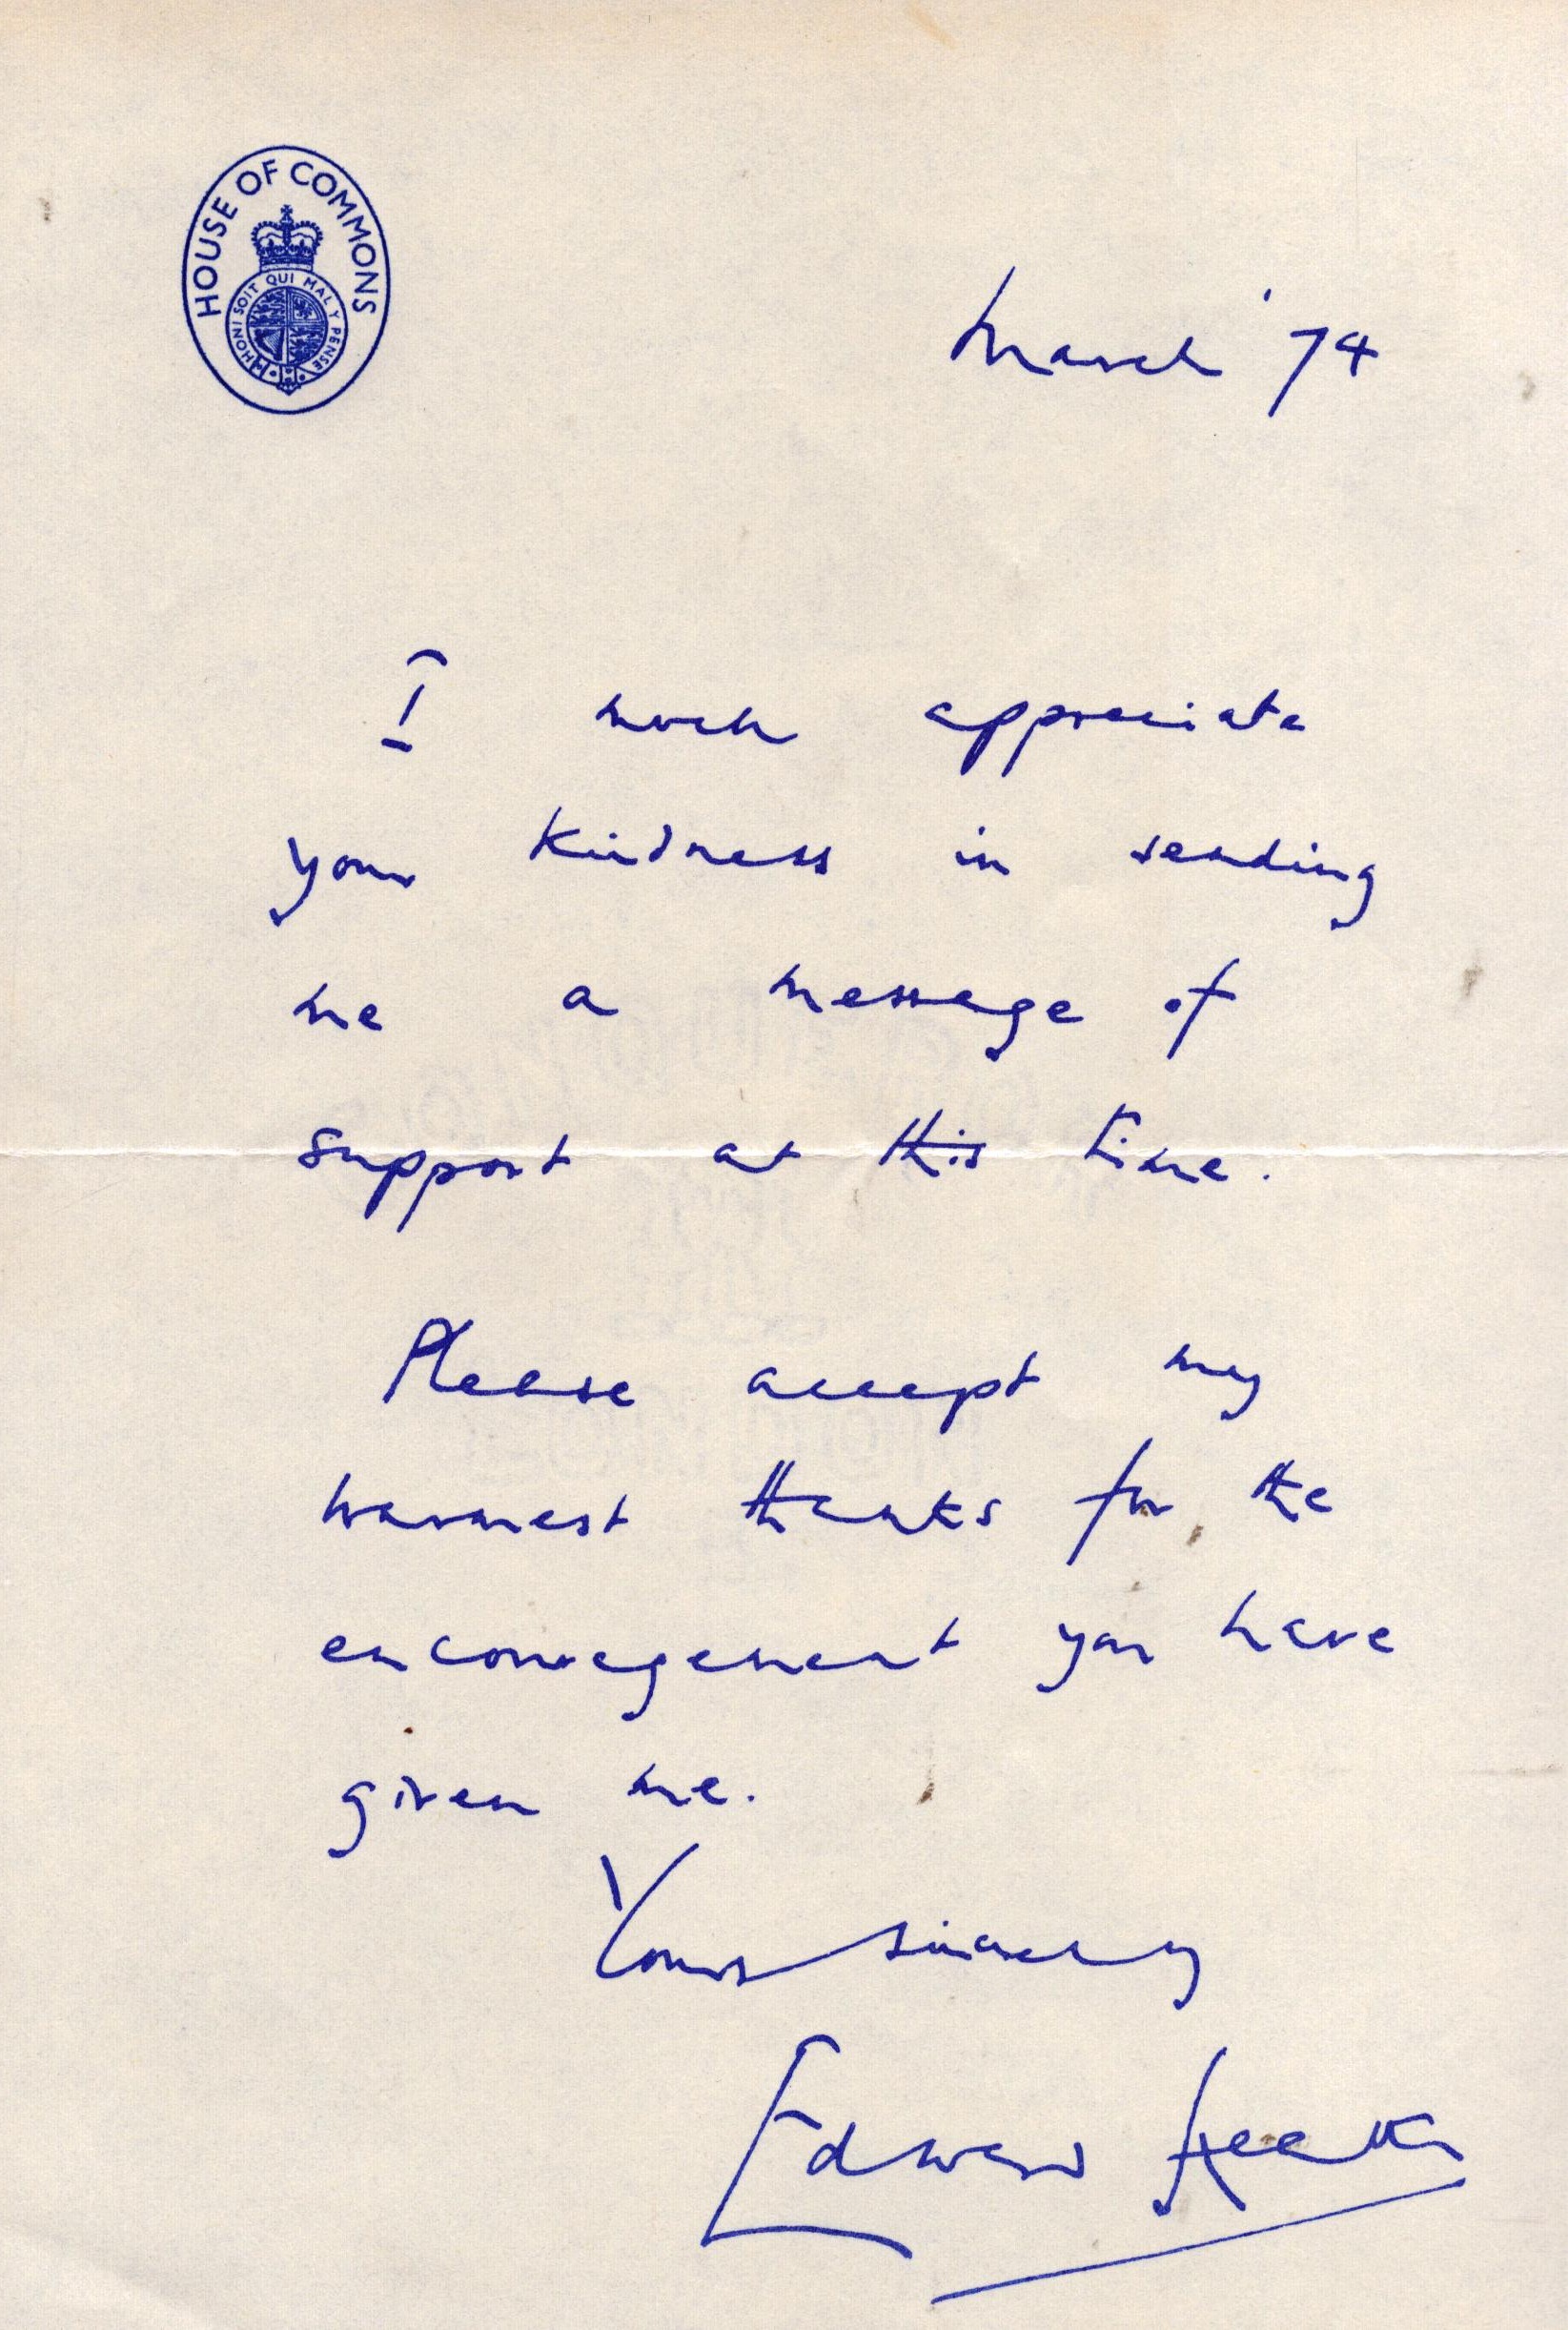 HOUSE OF COMMONS
HONI SOIT QUI MAL Y PENSE
March '74
I much appreciate
your kindness in sending
me a message of
support at this time.
Please accept my
warmest thanks for the
encouragement you have
given me.
Yours sincerely
Edward Heath